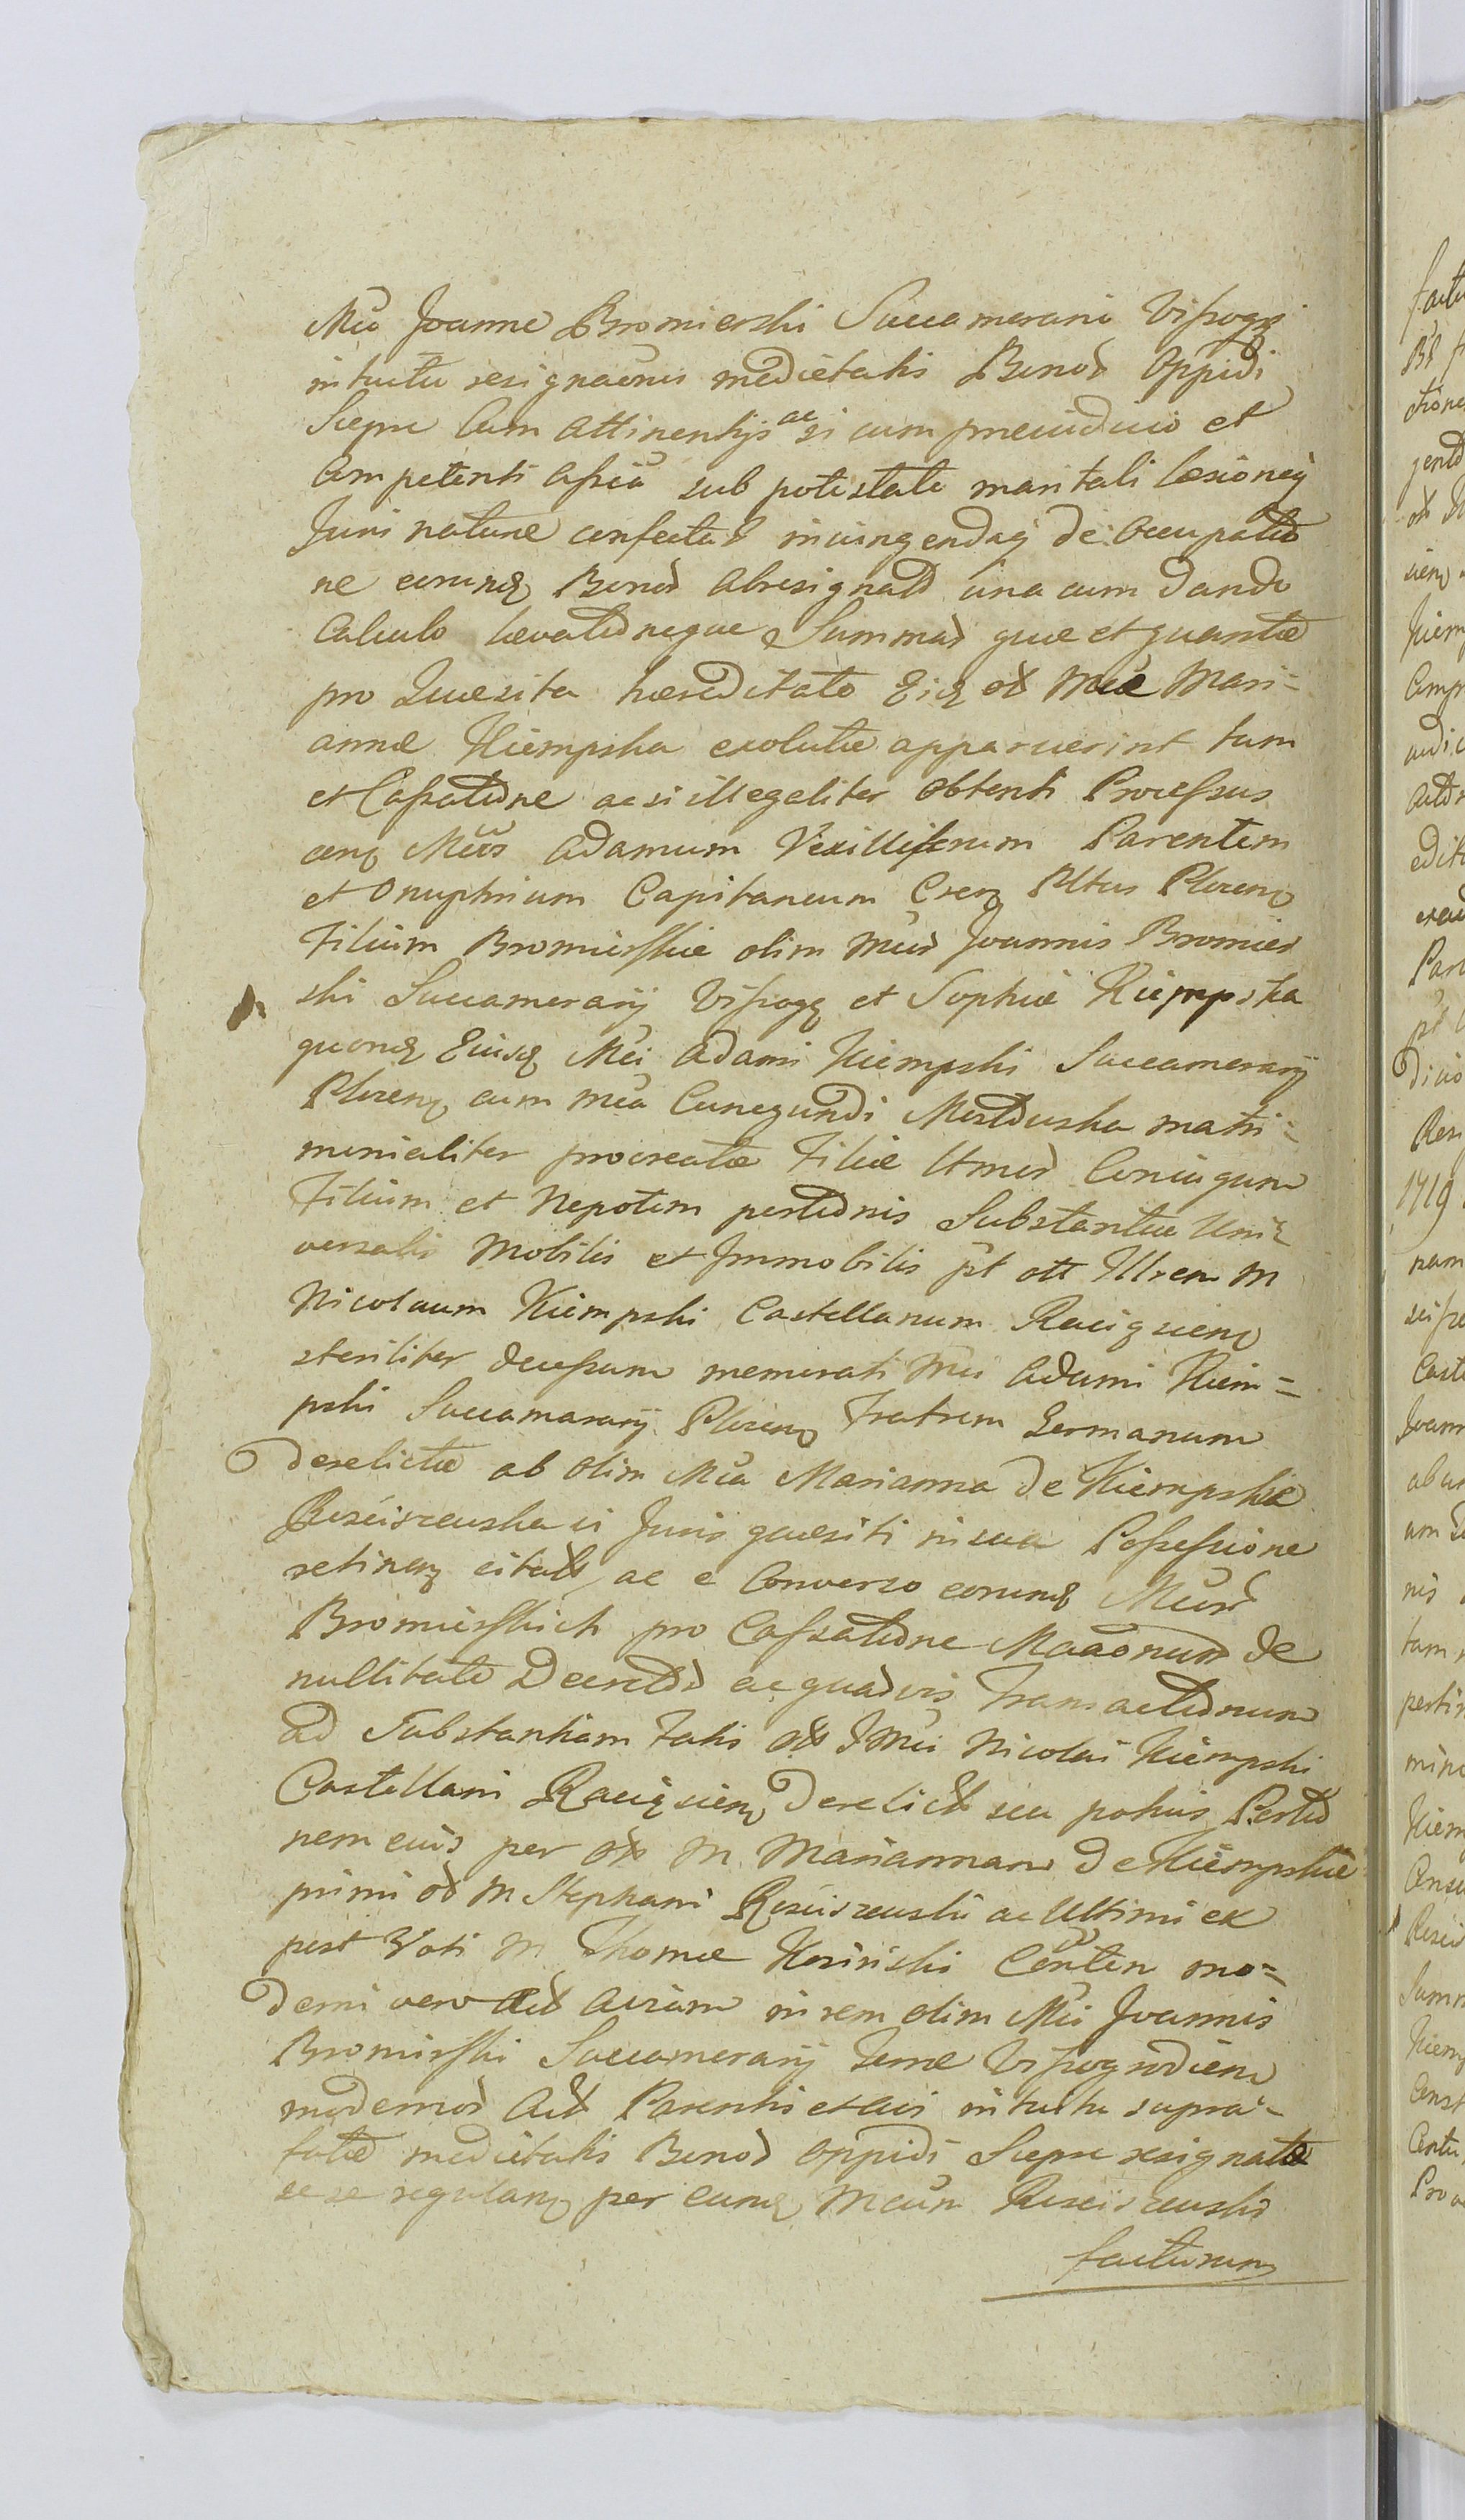 Mco Joanne Bromierski Succamerario Vissogr
intuitu resignaonis medietatis Bonor Oppidi
Sieprc Cum attinentijs ac si cum preiudicio et
Competenti assia sub potestate maritali læsioneq
Juri naturæ confectar iniungendaq de Occupatio
ne eorundq Bonor abresignator una cum dando
Calculo levationeque Summar quæ et quantæ
pro Quæsita hæreditate Eidq ad Mcæ Mari=
annæ Kiempska exolutæ apparuerint tum
et Cassatione ac si illegaliter obtenti Processus
cenq Mcos Adamum Vexilliferum Parentem
et Onuphrium Capitaneum Cser Pltus Plocenq
Filium Bromirskie olim Mcor Joannis Bromier
ski Succamerarij Vissogq et Sophiæ Kiempska
quondq Eiusdq Mci Adami Kiempski Succamerarij
Plocenq cum Mca Cunegundi Mostowska matri=
monialiter procreatæ Filiæ Utmor Coniugum
Filium et Nepotem portionis Substantiæ Uni=
versalis Mobilis et Immobilis pt ott Illrem M
Nicolaum Kiempski Castellanum Raciqzienq
steriliter decessum memorati Mci Adami Kiem=
pski Succamerarij Plocenq Fratrem Germanum
derelictæ ab Olim Mca Marianna de Kiempskie
Rosciszewska ei Juris quæsiti in sua Possessione
retinenq citatt, ac e Converso eorundq Mcor
Bromirskich pro Cassatione Maaonum de
nullitate Decretor ac quarvis Transactionum
ad Substantiam Talis ott Imci Nicolai Kiempski
Castellani Raciqzienq derelictt seu potius Portio
nem eius per ott M. Mariannam de Kiempskie
primi od M Stephani Rosciszewski ac Ultimi ex
post Voti M. Thomæ Kosinski Conten mo=
derni vero Actt aviam in rem olim Mci Joannis
Bromirski Succamerarij Terræ Vissogrodien
modernor Actt Parentis et avi intuitu supra=
fatæ medietatis Bonor Oppidi Sieprc resignatæ
sese regulanq per eundq Mcum Rosciszewski
facturum